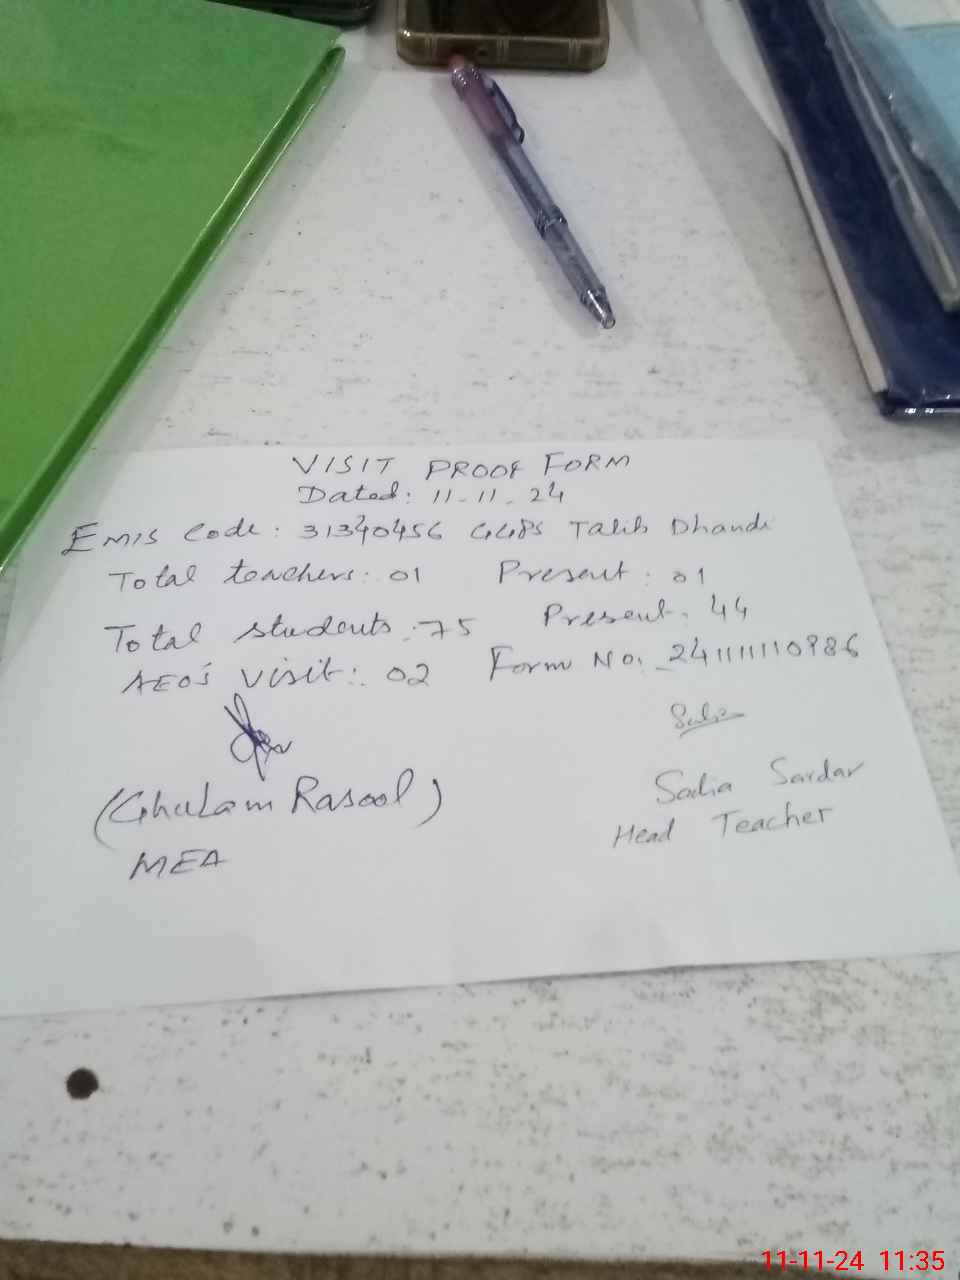 VISIT PROOF FORM
Dated: 11-11-24
EMIS Code: 31340456 GGPS Talib Dhandi
Total teachers: 01 Present: 01
Total students: 75 Present: 44
AEO's Visit: 02 Form No: 241111110986
(Ghulam Rasool)
MEA
Sadia Sardar
Head Teacher
11-11-24 11:35